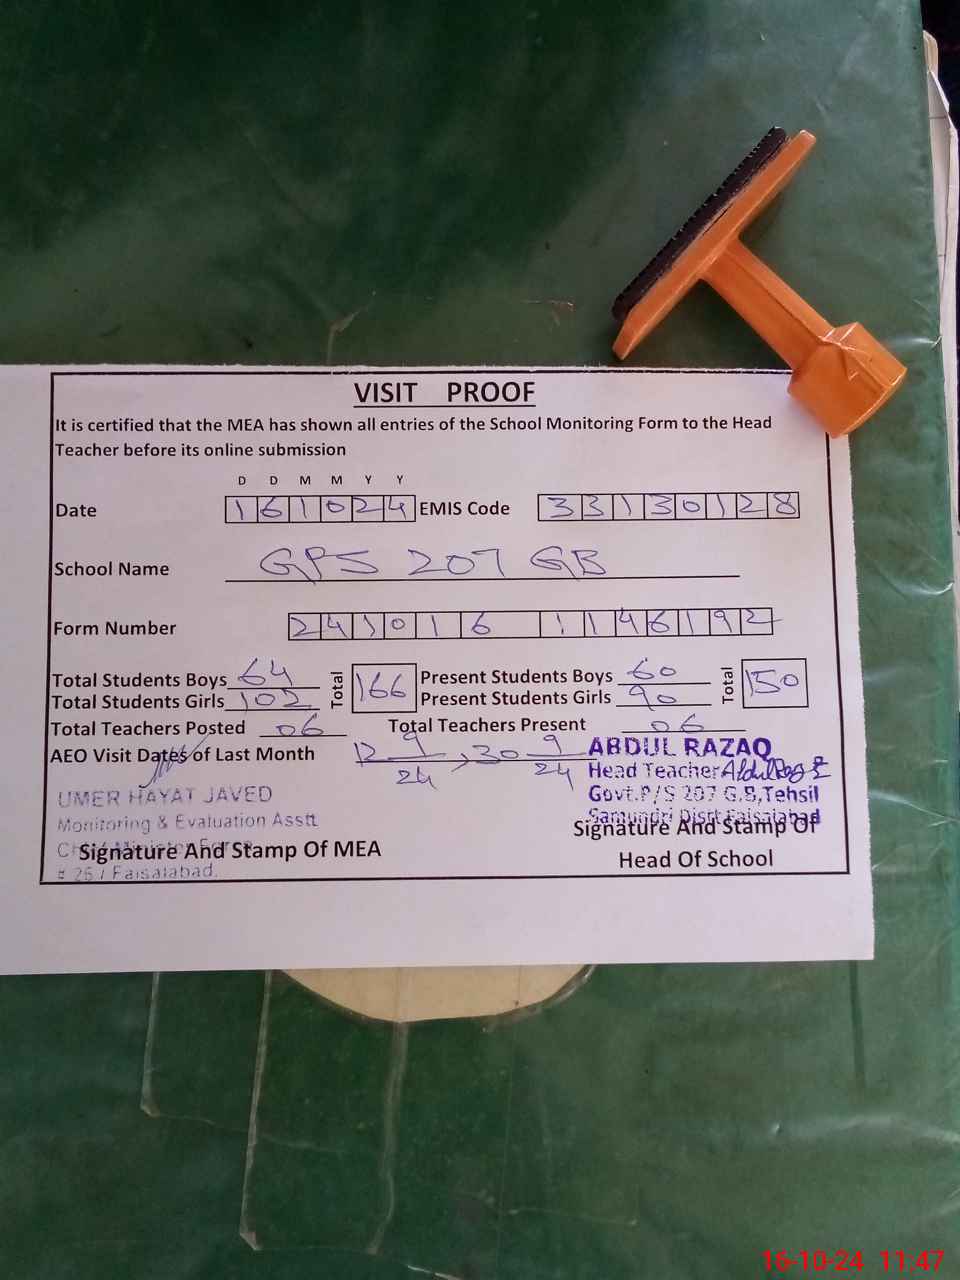 VISIT PROOF
It is certified that the MEA has shown all entries of the School Monitoring Form to the Head
Teacher before its online submission
D D M M Y Y
Date 161024 EMIS Code 33130128
School Name GPS 207 GB
Form Number 241016 1146192
Total Students Boys 64 Total 166 Present Students Boys 60 Total 150
Total Students Girls 102 Present Students Girls 90
Total Teachers Posted 06 Total Teachers Present 06
AEO Visit Dates of Last Month 12 9/24, 30 9/24
ABDUL RAZAQ
Head Teacher
Govt.P/S 207 G.B,Tehsil
Samundri Distt Faisalabad
Signature And Stamp Of
Head Of School
UMER HAYAT JAVED
Monitoring & Evaluation Asstt
Chief Minister Force
# 267 Faisalabad.
Signature And Stamp Of MEA
16-10-24 11:47